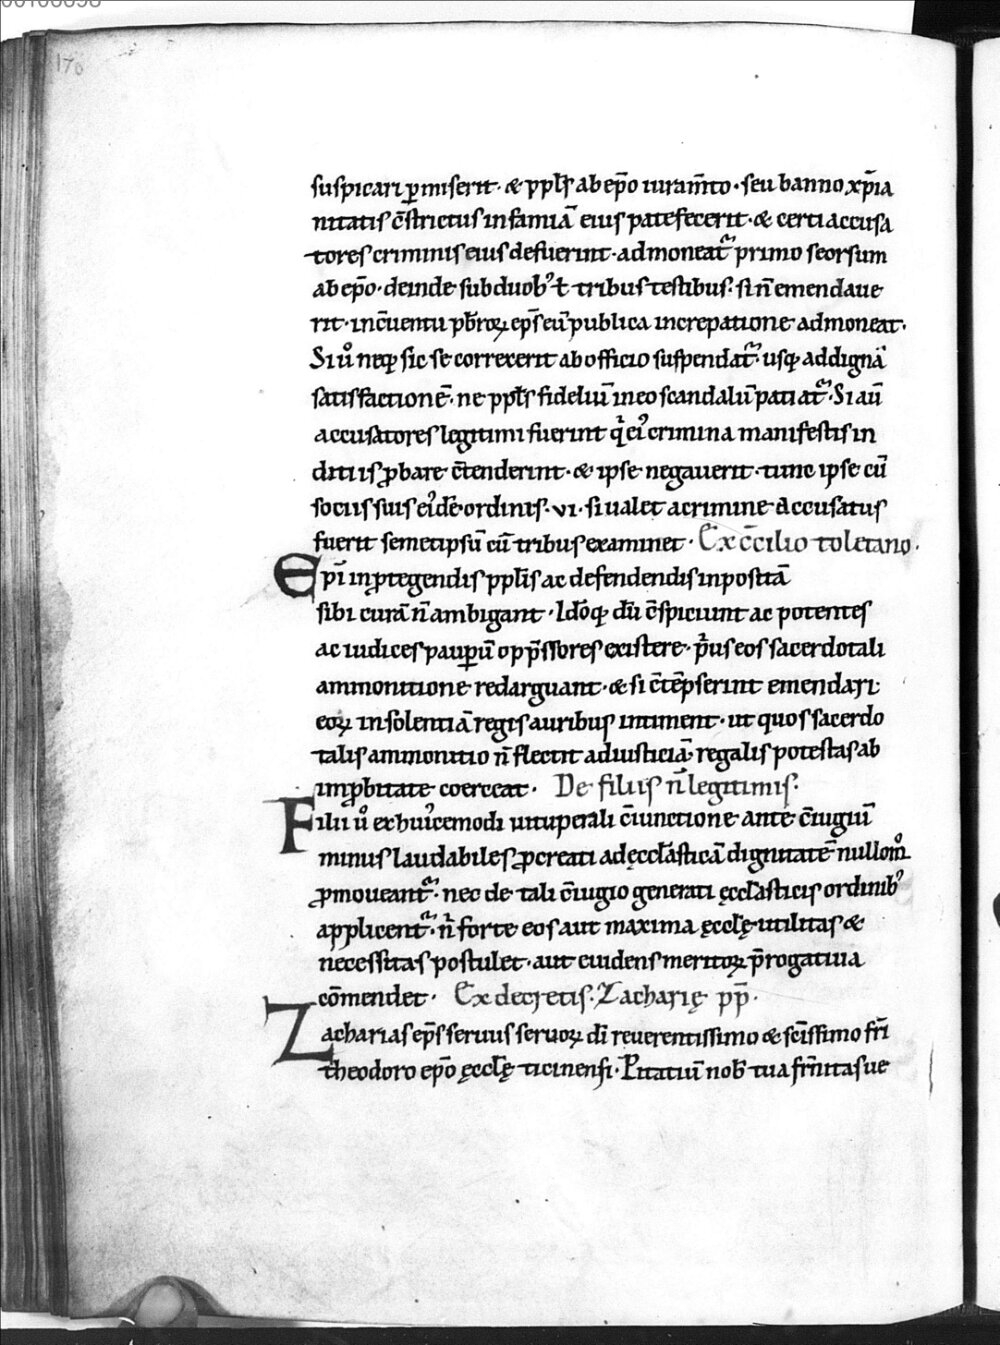 170
suspicari ꝑmiserit· & ppl̅s ab ep̅o iuram̅to· seu banno xp̅ia
nitatis c̅strictus infamiā eius patefecerit· & certi accusa
tores criminis eius defuerint· admoneat᷑ primo seorsum
ab ep̅o· deinde sub duob᷒ ł tribus testibus· si n̅ emendaue
rit· in c̅uentu pb̅roꝝ ep̅s eū publica increpatione admoneat·
Si ů neqꝫ sic se correxerit ab officio suspendat᷑· usqꝫ ad dignā
satisfactionē· ne ppl̅s fideliū in eo scandalū patiat᷑· Si aū
accusatores legitimi fuerint q̇ ei᷒ crimina manifestis in
ditiis ꝓbare c̅tenderint· & ipse negauerit· tunc ipse cū
sociis suis ei᷒dē ordinis· vi· si ualet a crimine accusatus
fuerit semetipsū cū tribus examinet· Ex c̅cilio toletano·
Ep̅i in ꝓtegendis ppl̅is ac defendendis inpositā
sibi curā n̅ ambigant· Ido̅qꝫ dū c̅spiciunt ac potentes
ac iudices pauꝑū opp̅ssores existere· p̓us eos sacerdotali
ammonitione redarguant· & si c̅tēpserint emendari·
eoꝝ insolentiā regis auribus intiment· ut quos sacerdo
talis ammonitio n̅ flectit ad iusticiā· regalis potestas ab
imꝓbitate coerceat· De filiis n̅ legitimis·
Filii ů ex hui᷒cemodi uituperali c̅iunctione ante c̅iugiū
minus laudabiles ꝓcreati ad ęccl̅asticā dignitatē nullom̊
ꝓmoueant᷑· nec de tali c̅iugio generati ęccl̅asticis ordinib᷒
applicent᷑· n̓ forte eos aut maxima ęccl̅ę utilitas &
necessitas postulet· aut euidens meritoꝝ p̅rogatiua
cōmendet· Ex decretis· Zacharię pp̅·
Zacharias ep̅s seruus seruoꝝ di̅ reuerentissimo & sc̅issimo fr̅i
theodoro ep̅o ęccl̅ę ticinensi· Pitatiū nob̅ tua fr̅nitas ue